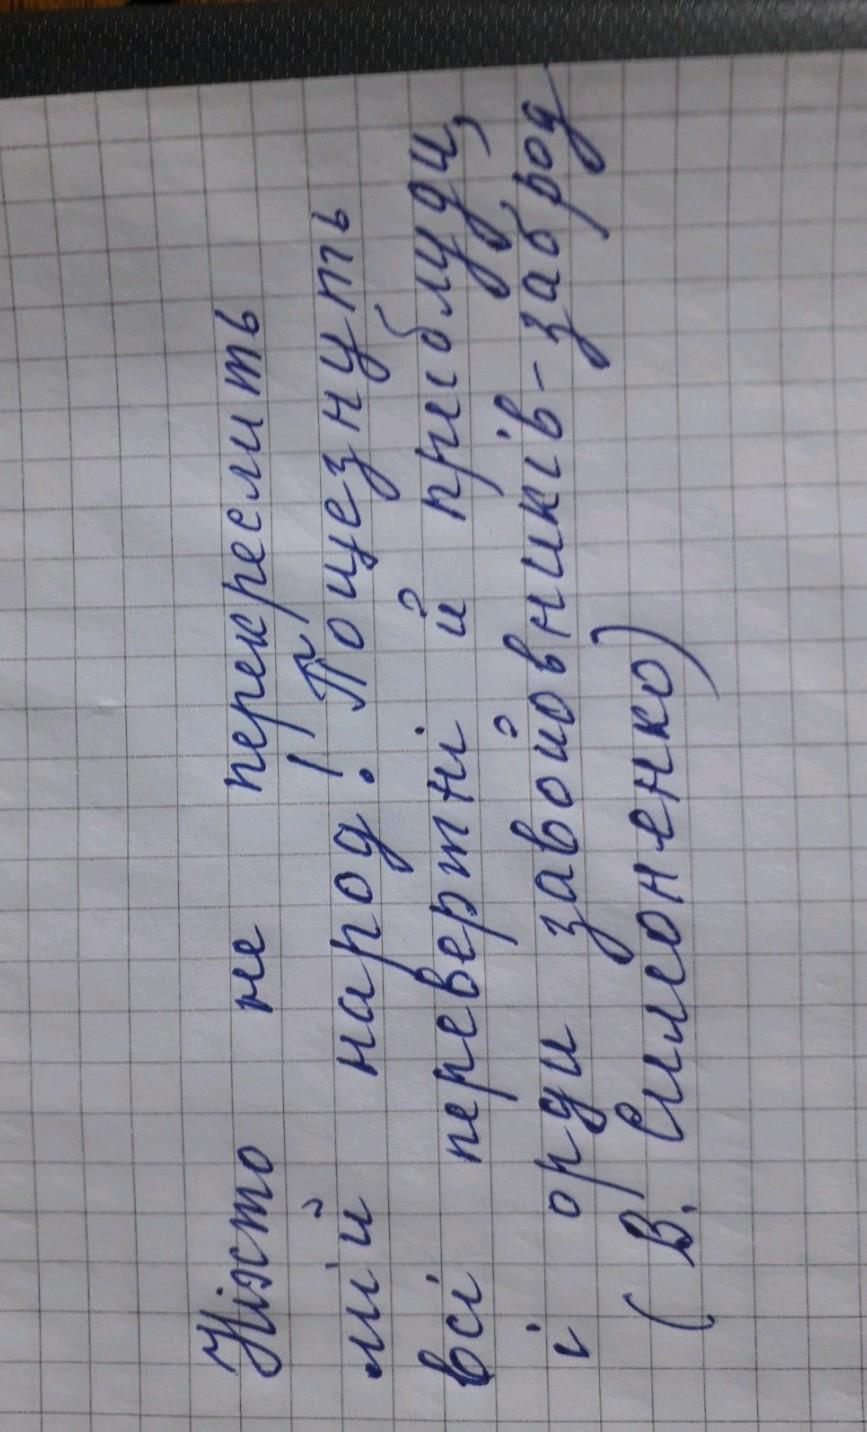 Ніхто не перекреслить
мій народ! Пощезнуть
всі перевертні й приблуди,
і орди завойовників-заброд
(В. Симоненко)